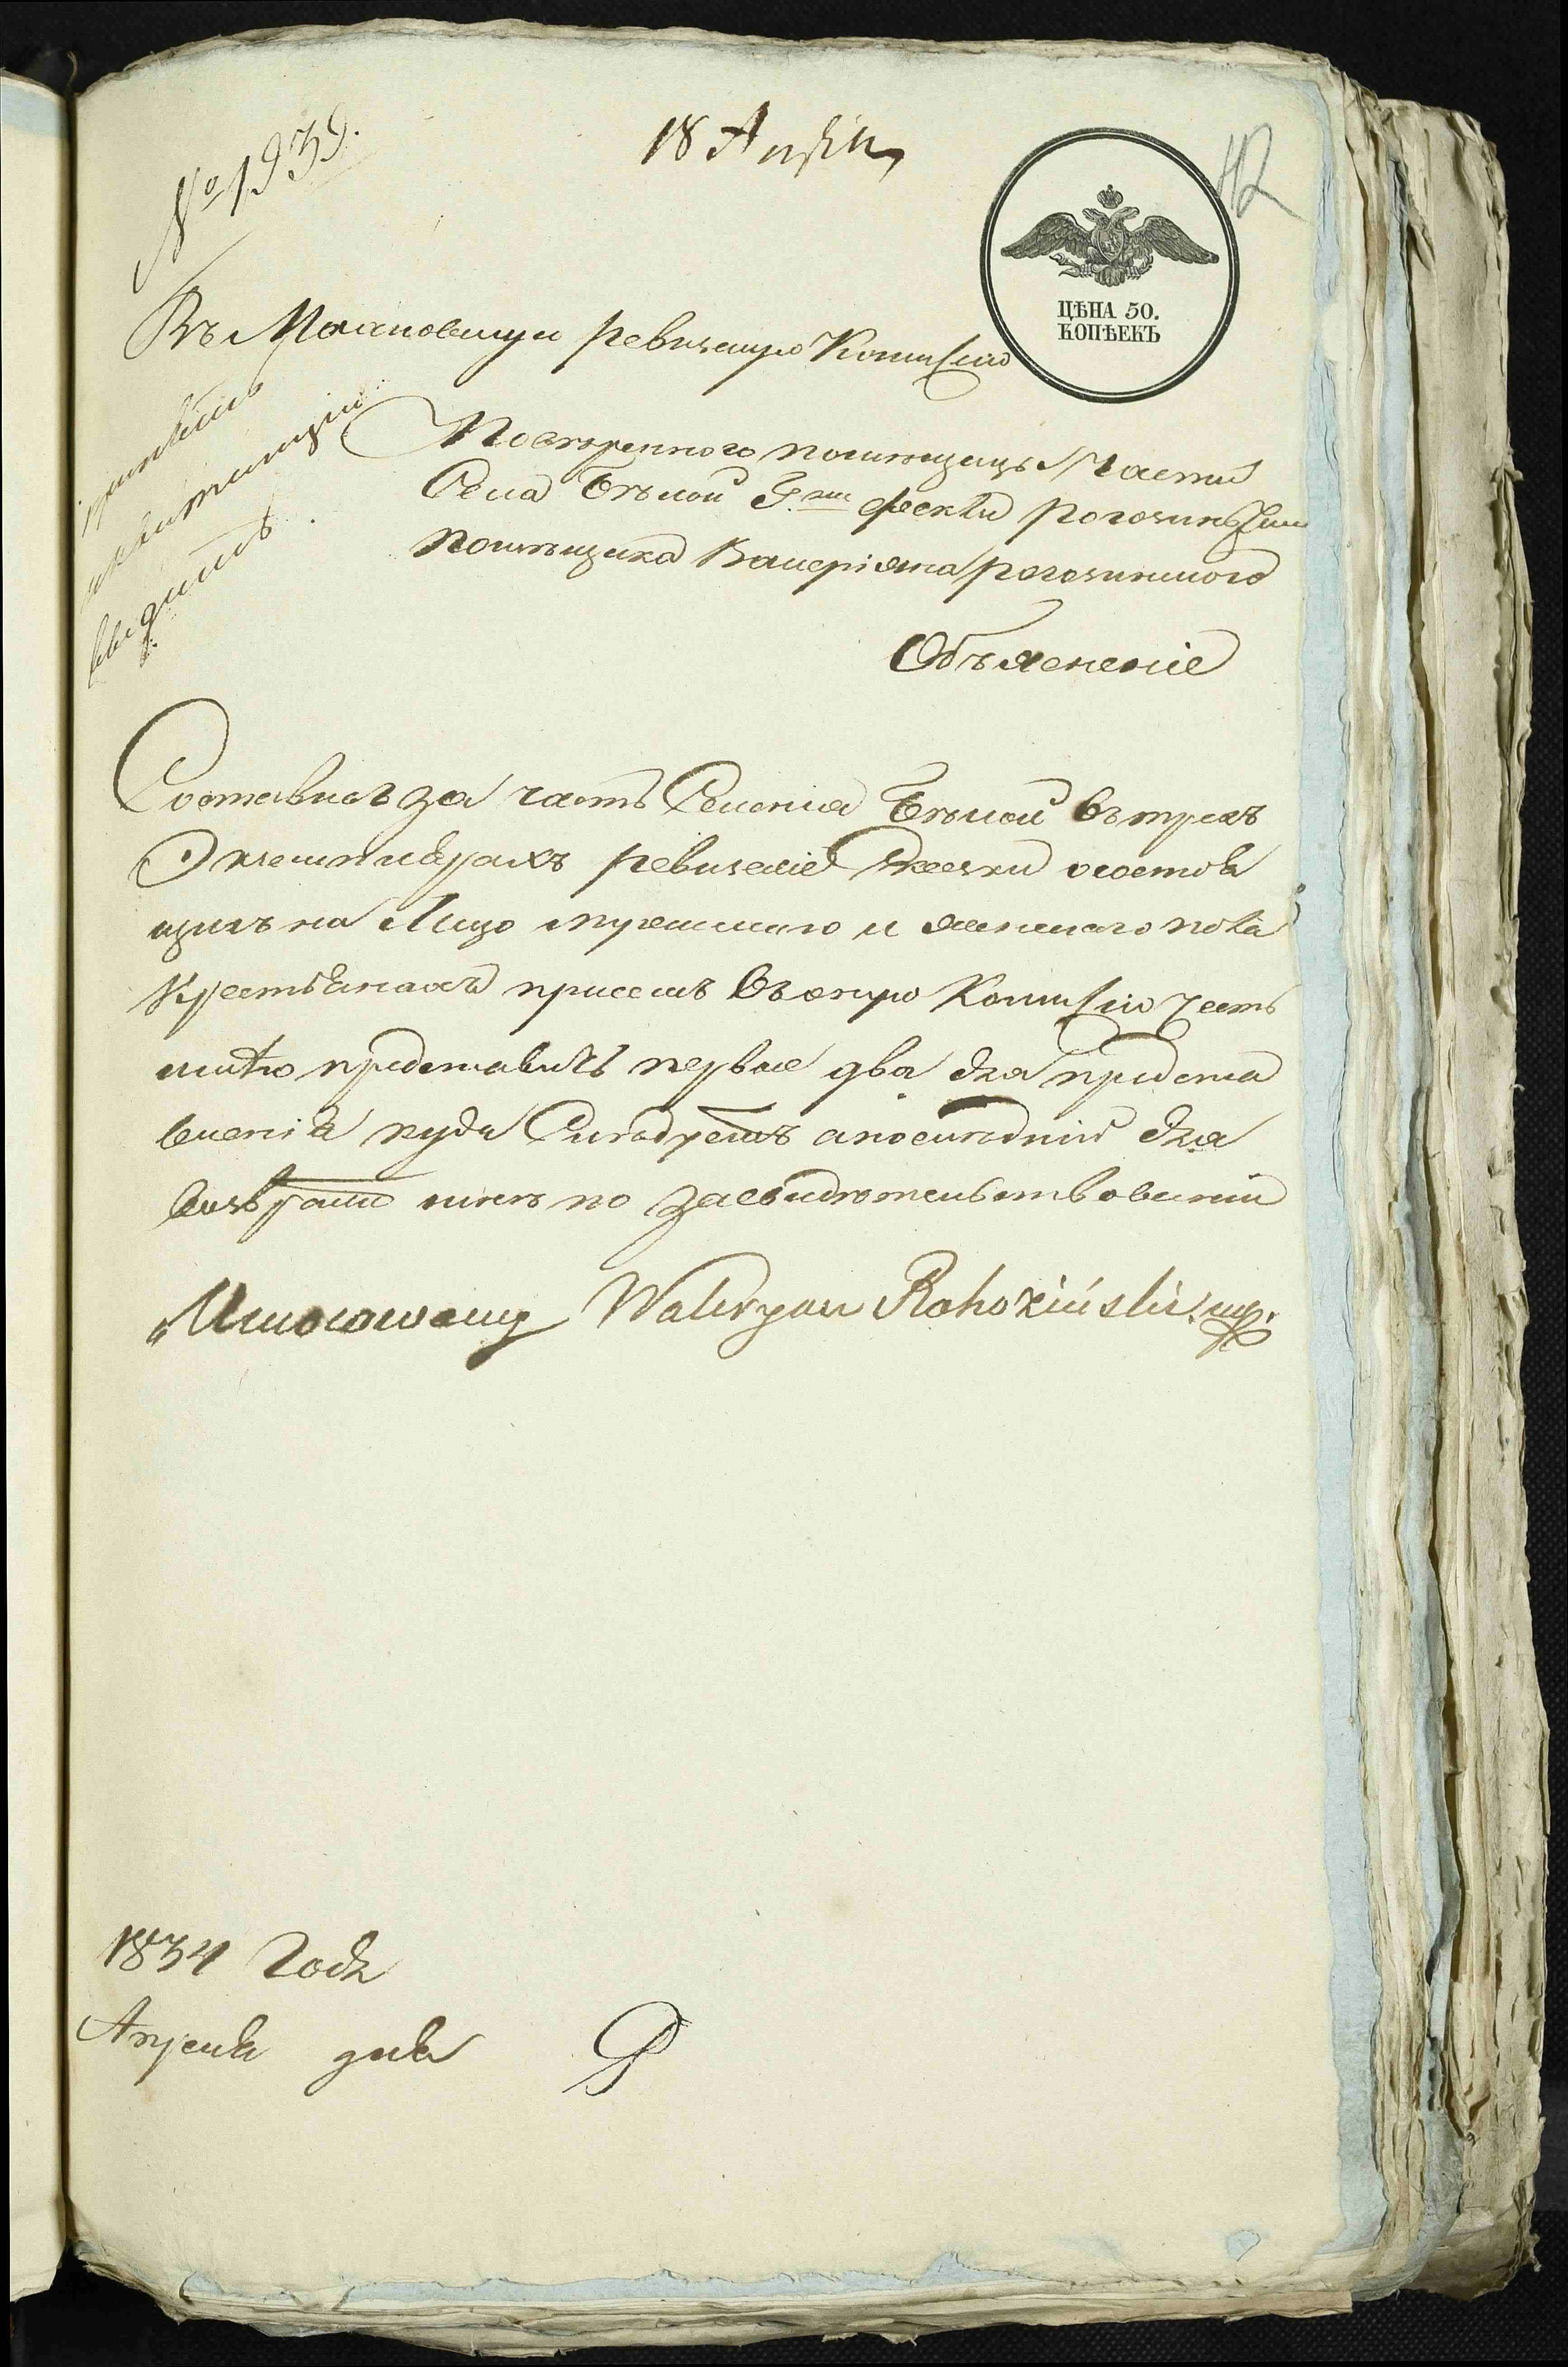 № 1939.
18 Апрѣля
42
ЦѢНА 50.
КОПѢЕКЪ
Въ Махновскую ревизскую Комисію
принять
и квитанцію
выдать.
Повѣренного помѣщицы части
Села Бѣлой Г.жи Феклы Рогозинской
помѣщика Валеріяна Рогозинского
Объясненіе
Составивъ за часть Селенія Бѣлой въ трехъ
Экземплярахъ ревизскіе Сказки о состоя
щихъ на Лицо мужеского и женского пола
Крестьянахъ при семъ въ оную Комисію честь
имѣю представить первые два для предста
вленія куда Слѣдуетъ а послѣдній для
возврата мнѣ по засвидѣтельствованіи
Umocowany Waleryan Rohoziński mp.
1834 Года
Апреля дня